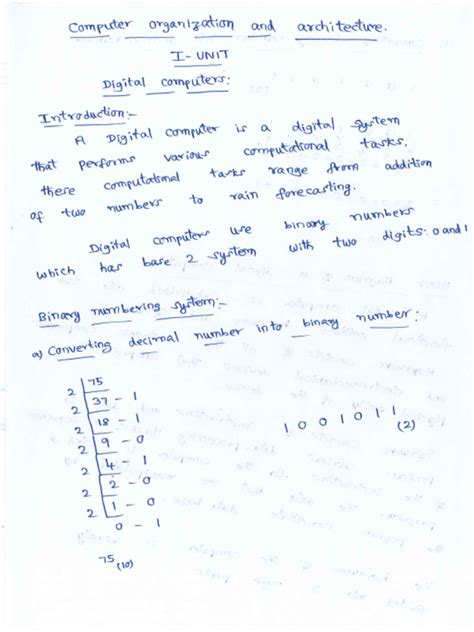 Computer organization and architecture.
I - UNIT
Digital computers:
Introduction:-
A Digital computer is a digital system
that performs various computational tasks.
these computational tasks range from addition
of two numbers to rain forecasting.
Digital computers use binary numbers
which has base 2 system with two digits: 0 and 1
Binary numbering system:-
a) Converting decimal number into binary number:
2 75
2 37 - 1
2 18 - 1
2 9 - 0
2 4 - 1
2 2 - 0
2 1 - 0
0 - 1
1 0 0 1 0 1 1 (2)
75 (10)